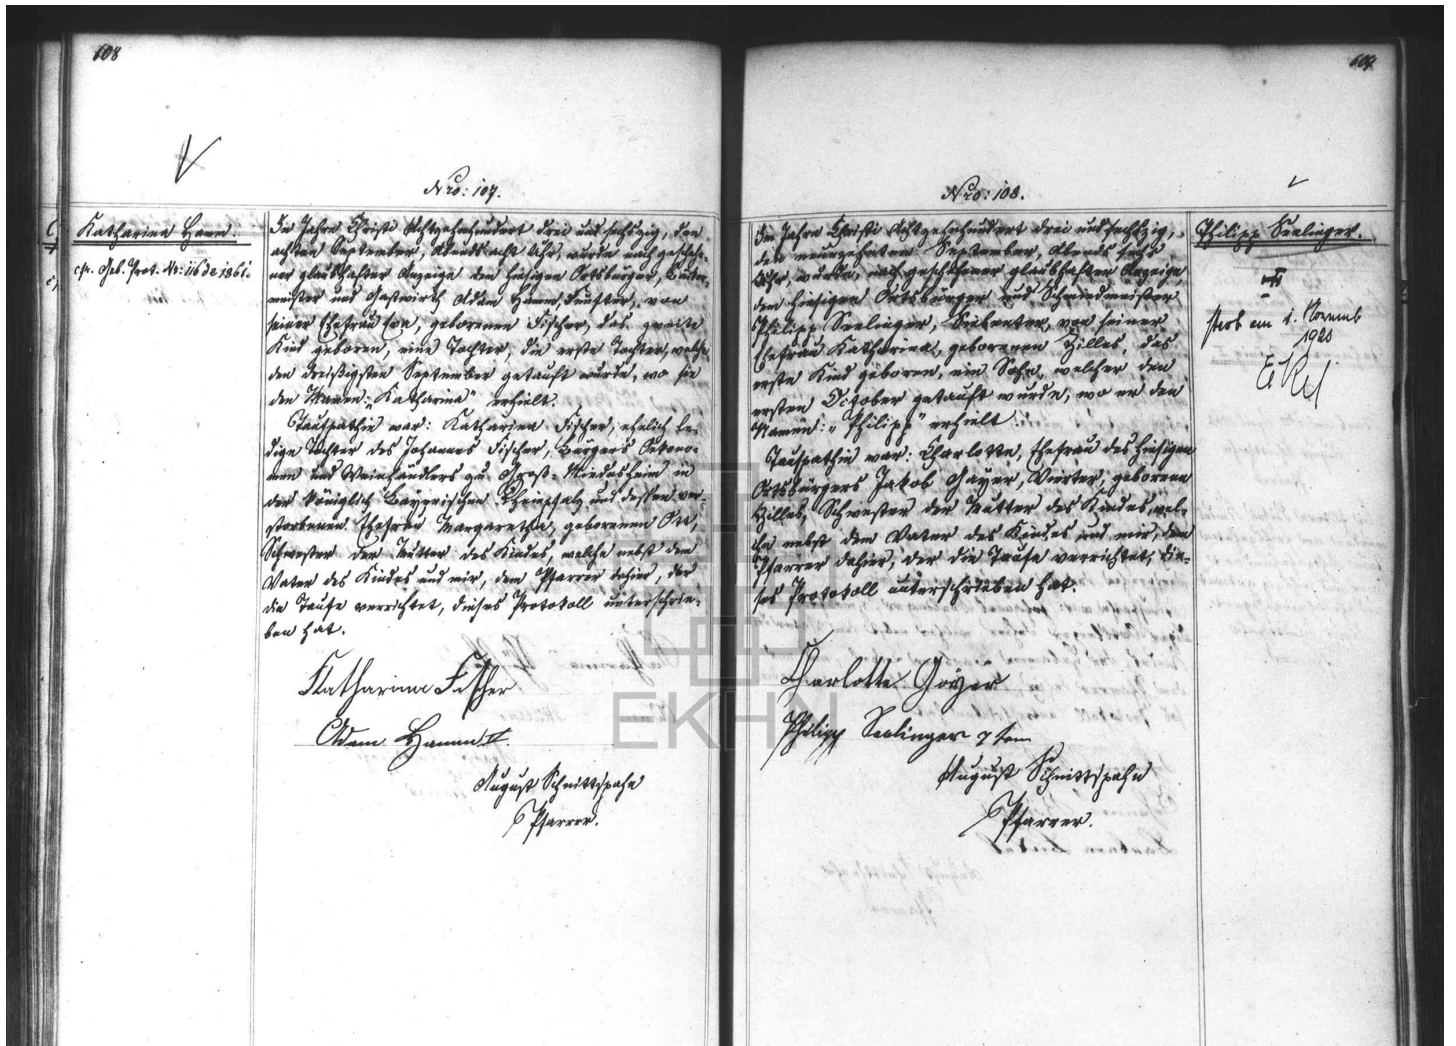 608
Nro: 107.
Katharina Hamm.
cfr. Geb. Prot. Nr: 116 de 1861.
Im Jahre Christi Achtzehnhundert drei und sechszig, den
achten September, Abends acht Uhr, wurde nach geschehe-
ner glaubhafter Anzeige dem hiesigen Ortsbürger,
meister und Gastwirth Adam Hamm, von
seiner Ehefrau Eva, geborenen Fischer, das zweite
Kind geboren, eine Tochter, die erste Tochter, welche
den dreißigsten September getauft wurde, wo sie
den Namen: „Katharina" erhielt.
Taufpathin war: Katharina Fischer, ehelich le-
dige Tochter des Johannes Fischer, Bürgers Oekono-
men und Weinhändlers zu Groß-Niedesheim in
der Königlich Bayerischen Rheinpfalz und dessen ver-
storbenen Ehefrau Margaretha, geborenen Ott,
Schwester der Mutter des Kindes, welche nebst dem
Vater des Kindes und mir, dem Pfarrer dahier, der
die Taufe verrichtet, dieses Protokoll unterschrie-
ben hat.
Katharina Fischer
Adam Hamm IV.
August Schnittspahn
Pfarrer.
609
Nro: 108.
Im Jahre Christi Achtzehnhundert drei und sechszig,
den neunzehnten September, Abends sechs
Uhr, wurde, nach geschehener glaubhafter Anzeige,
dem hiesigen Ortsbürger und Schmiedmeister
Philipp Seelinger, Siebenter, von seiner
Ehefrau Katharina, geborenen Hilles, das
erste Kind geboren, ein Sohn, welcher den
ersten October getauft wurde, wo er den
Namen: „Philipp" erhielt.
Taufpathin war: Charlotte, Ehefrau des hiesigen
Ortsbürgers Jakob Gayer, Vierter, geborene
Hilles, Schwester der Mutter des Kindes, wel-
che nebst dem Vater des Kindes und mir, dem
Pfarrer dahier, der die Taufe verrichtet, die-
ses Protokoll unterschrieben hat.
Charlotte Gayer
Philipp Seelinger 7 ten
August Schnittspahn
Pfarrer.
Philipp Seelinger.
starb am 1. Novemb
1920
EKHN